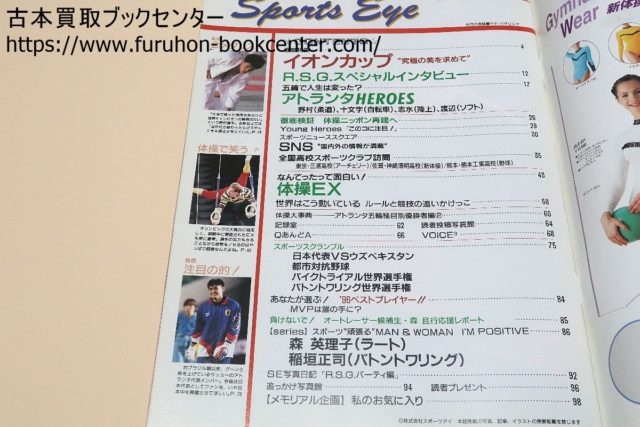 古本買取ブックセンター
https://www.furuhon-bookcenter.com/
Sports Eye
イオンカップ "究極の美を求めて" 4
R.S.G.スペシャルインタビュー 12
五輪で人生は変った? 17
アトランタHEROES
野村(柔道)、十文字(自転車)、志水(陸上)、渡辺(ソフト)
徹底検証 体操ニッポン再建へ 26
Young Heroes "このコに注目!" 29
スポーツニューススクエア 30
SNS "国内外の情報が満載"
全国高校スポーツクラブ訪問 35
なんてったって面白い! 43
体操EX
世界はこう動いている ルールと競技の追いかけっこ 58
体操大事典―アトランタ五輪種目別優勝者編② 60
記録室 62 読者投稿写真館 64
QあんどA 66 VOICE³ 68
スポーツスクランブル 75
日本代表VSウズベキスタン
都市対抗野球
バイクトライアル世界選手権
バトントワリング世界選手権
あなたが選ぶ! '96ベストプレイヤー!! 84
MVPは誰の手に?
負けないで! オートレーサー候補生・森 且行応援レポート 85
【series】スポーツ"頑張る"MAN & WOMAN I'M POSITIVE 86
森 英理子(ラート)
稲垣正司(バトントワリング)
SE写真日記「R.S.G.パーティ編」 92
追っかけ写真館 94 読者プレゼント 96
【メモリアル企画】私のお気に入り 98
©株式会社スポーツアイ
体操で笑う
注目の的!
Gymna
Wear 新体操